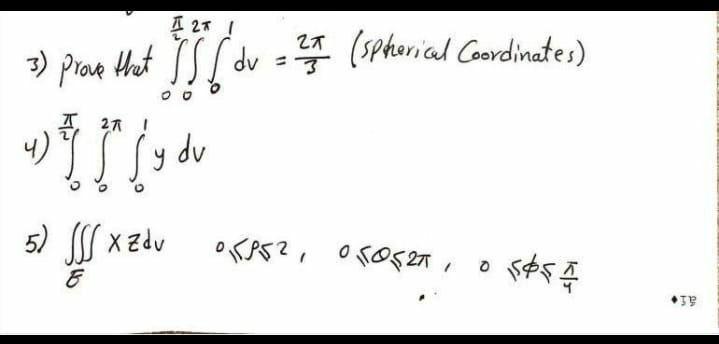 3) Prove that ∫₀^{π/2} ∫₀^{2π} ∫₀^{1} dv = 2π/3 (Spherical Coordinates)
4) ∫₀^{π/2} ∫₀^{2π} ∫₀^{1} y dv
5) ∭_E x z dv 0 ≤ ρ ≤ 2, 0 ≤ θ ≤ 2π, 0 ≤ ϕ ≤ π/4